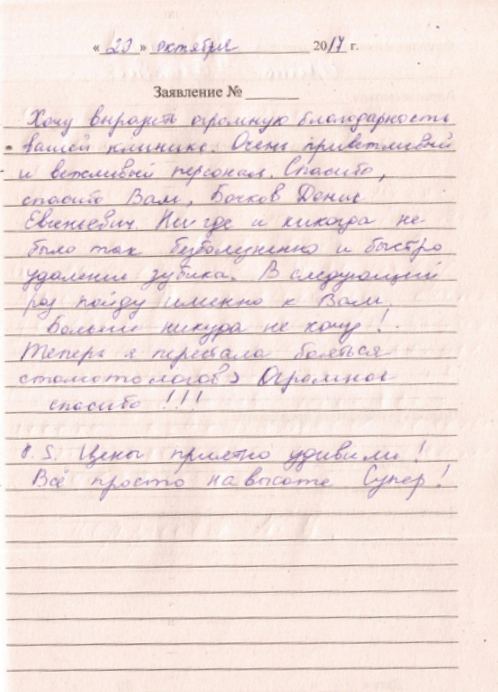 « 20 » октября 2017 г.
Заявление № ______
Хочу выразить огромную благодарность
вашей клинике. Очень приветливый
и вежливый персонал. Спасибо,
спасибо Вам, Бочков Денис
Евгеньевич. Нигде и никогда не
было так безболезненно и быстро
удаление зубика. В следующий
раз пойду именно к Вам.
Больше никуда не хочу!
Теперь я перестала бояться
стоматологов) Огромное
спасибо !!!
P.S. Цены приятно удивили!
Всё просто на высоте Супер!